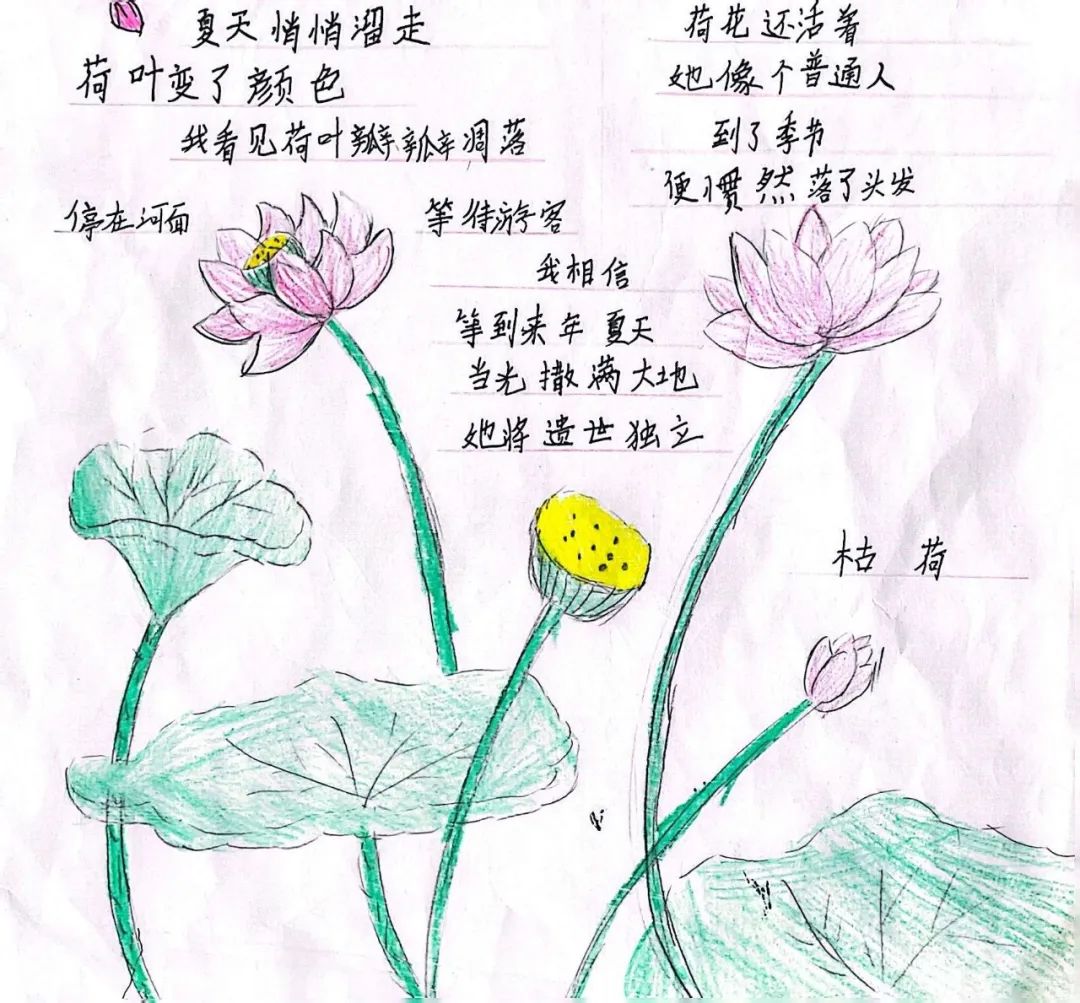 夏天悄悄溜走
荷叶变了颜色
我看见荷叶瓣瓣凋落
停在河面
等待游客
我相信
等到来年夏天
当光撒满大地
她将遗世独立
荷花还活着
她像个普通人
到了季节
便惯然落了头发
枯荷